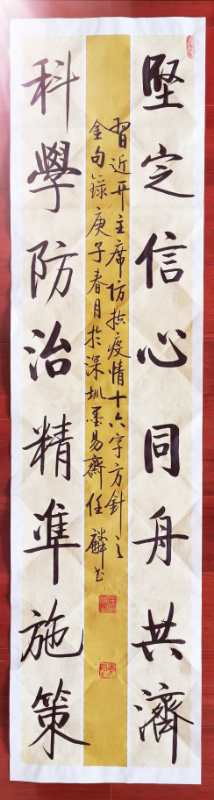 堅定信心同舟共濟
習近平主席防控疫情十六字方針之
金句錄庚子春月於深圳墨易齋任麟書
科學防治精準施策